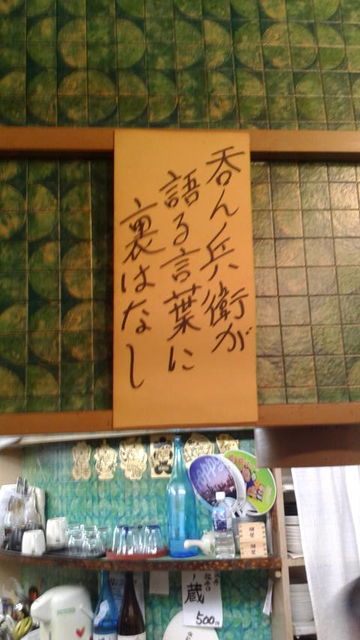 呑ん兵衛が
語る言葉に
裏はなし
蔵
500円